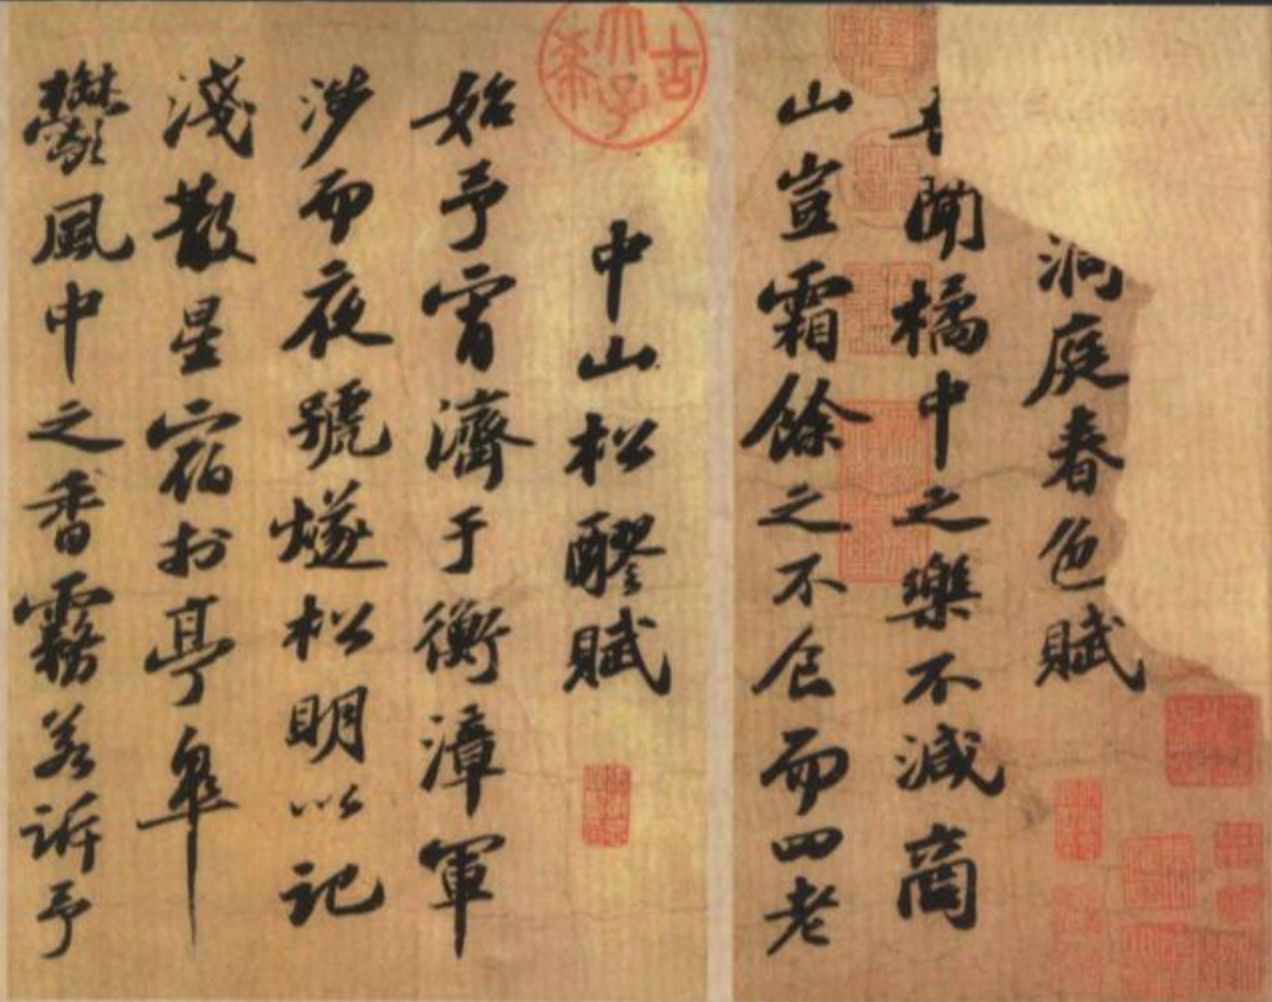 洞庭春色賦
聞橘中之樂不減商
山豈霜餘之不食而四老
古希天子
中山松醪賦
始予宵濟于衡漳軍
涉而夜號燧松明以記
淺散星宿於亭皋
鬱風中之香霧若訴予